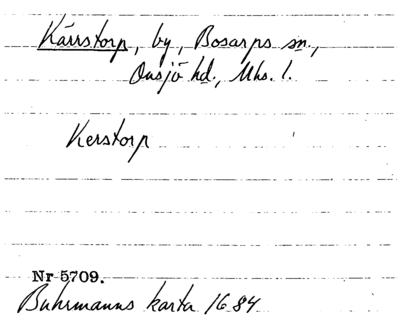 Kärrstorp, by, Bosarps sn.,
Onsjö hd., Mhs. l.
Kerstorp
Nr 5709.
Buhrmanns karta 1684